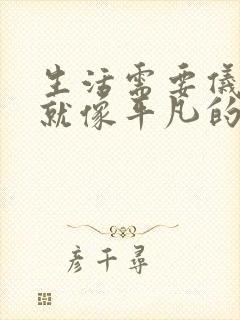 生活需要仪
就像平凡的
彦千尋